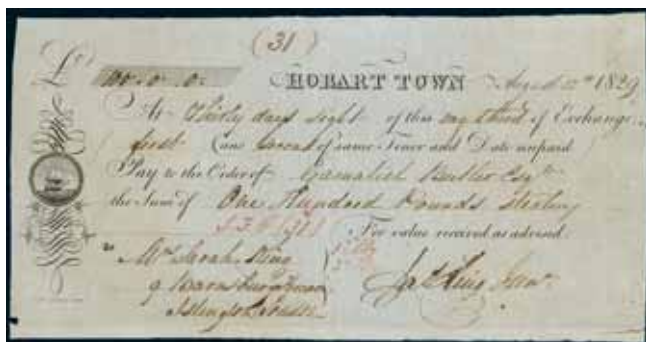 (31)
£ 100.0.0. HOBART TOWN August 12th 1829
At Thirty days sight of this my third of Exchange
first and second of same Tenor and Date unpaid
Pay to the Order of Gamaliel Butler Esqre
the Sum of One Hundred Pounds Sterling
For value received as advised.
To Mrs Sarah King
9 Terrace
Islington London